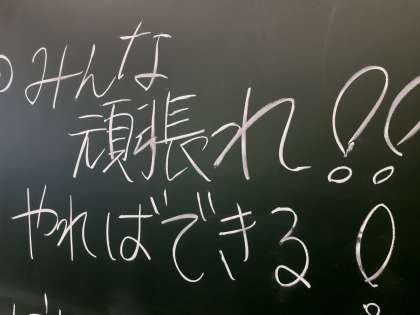 みんな
頑張れ!!
やればできる!